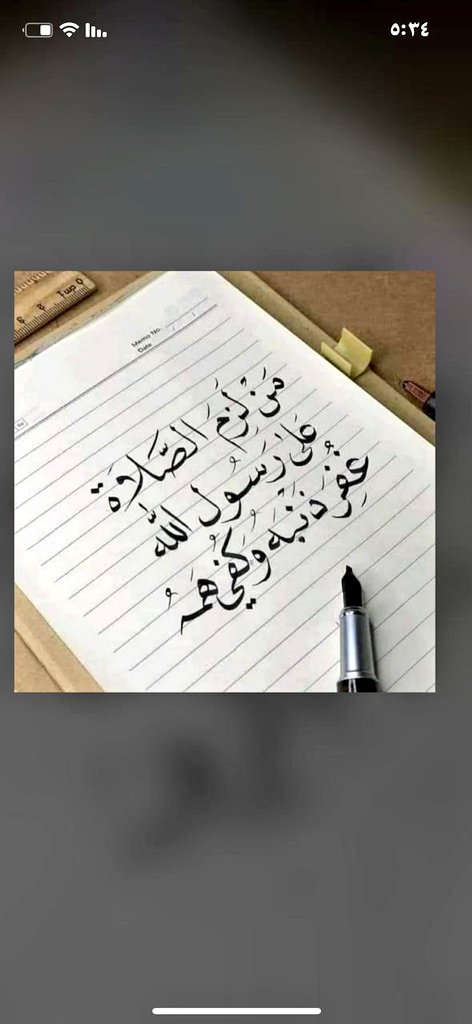 ٥:٣٤
Memo No.
Date / /
مَنْ لَزِمَ الصَّلَاة
عَلَى رَسُول الله
غُفِرَ ذَنْبَه وَكُفِيَ هَمُّه